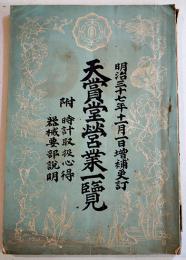 明治三十七年十一月一日增補更訂
天賞堂營業一覽
附
時計取扱心得
器械要部說明